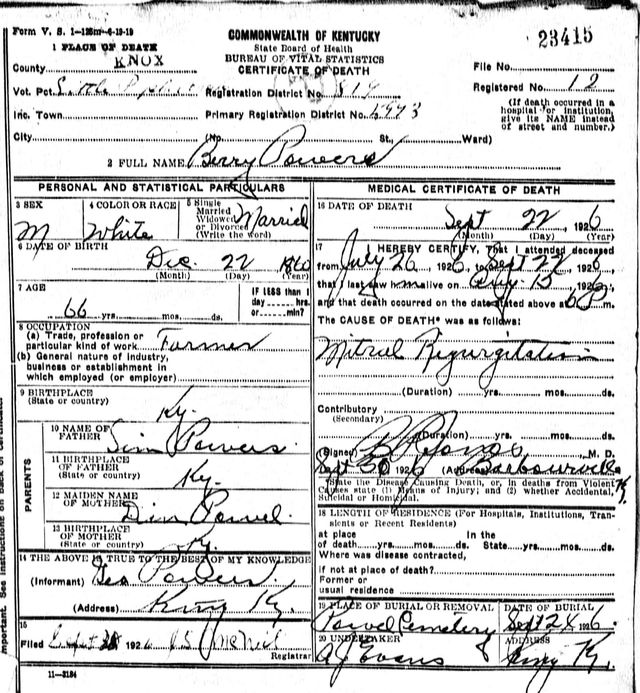 Form V. S. 1-125m-6-19-19
23415
COMMONWEALTH OF KENTUCKY
State Board of Health
BUREAU OF VITAL STATISTICS
CERTIFICATE OF DEATH
1 PLACE OF DEATH
County KNOX
File No.
Vot. Pct. Little Registration District No. 819
Registered No. 12
Inc. Town Primary Registration District No.
(If death occurred in a hospital or institution, give its NAME instead of street and number.)
City (No. St., Ward)
2 FULL NAME Berry Powers
PERSONAL AND STATISTICAL PARTICULARS
3 SEX M
4 COLOR OR RACE White
5 Single Married Widowed or Divorced (Write the word) Married
6 DATE OF BIRTH
Dec. 22 1860
(Month) (Day) (Year)
7 AGE
66 yrs. mos. ds.
IF LESS than 1 day hrs. or min?
8 OCCUPATION
(a) Trade, profession or particular kind of work Farmer
(b) General nature of industry, business or establishment in which employed (or employer)
9 BIRTHPLACE
(State or country) Ky.
PARENTS
10 NAME OF FATHER Powers
11 BIRTHPLACE OF FATHER
(State or country) Ky.
12 MAIDEN NAME OF MOTHER
13 BIRTHPLACE OF MOTHER
(State or country) Ky.
14 THE ABOVE IS TRUE TO THE BEST OF MY KNOWLEDGE
(Informant) Powers
(Address) Ky.
15
Filed Sept 192
Registrar
11-3184
MEDICAL CERTIFICATE OF DEATH
16 DATE OF DEATH
Sept 22, 1926
(Month) (Day) (Year)
17 I HEREBY CERTIFY, That I attended deceased
from July 26, 1926, to Sept 22, 1926,
that I last saw him alive on Aug. 15, 192
and that death occurred on the date stated above at m.
The CAUSE OF DEATH* was as follows:
Mitral Regurgitation
(Duration) yrs. mos. ds.
Contributory
(Secondary)
(Duration) yrs. mos. ds.
(Signed) M. D.
Sept 30 1926 (Address) Barbourville Ky.
*State the Disease Causing Death, or, in deaths from Violent Causes state (1) Means of Injury; and (2) whether Accidental, Suicidal or Homicidal.
18 LENGTH OF RESIDENCE (For Hospitals, Institutions, Transients or Recent Residents)
at place In the
of death yrs. mos. ds. State yrs. mos. ds.
Where was disease contracted,
if not at place of death?
Former or
usual residence
19 PLACE OF BURIAL OR REMOVAL Cemetery
DATE OF BURIAL Sept 1926.
20 UNDERTAKER A J Evans
ADDRESS Ky.